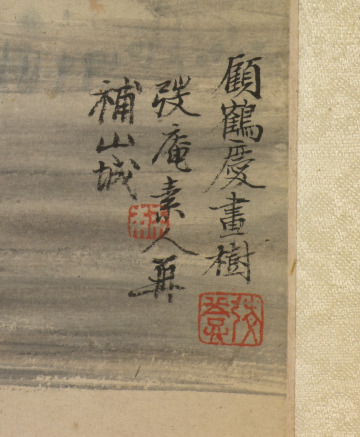 顧鶴慶畫樹
弢庵素人兼
補山城
弢菴